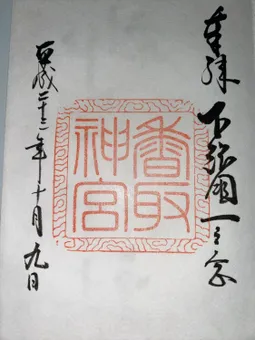 奉拝 下総國一之宮
香取
神宮
平成二十二年十月九日